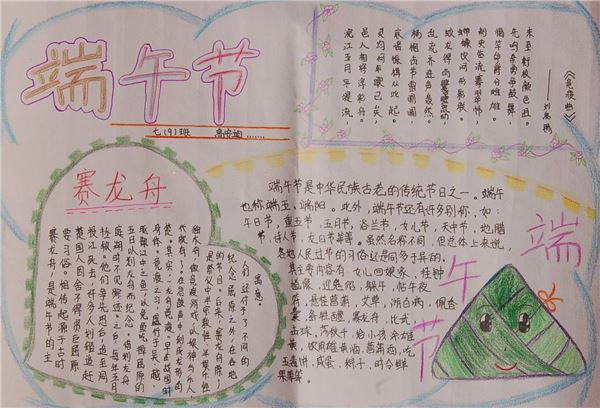 端午节
七(9)班 高俊迪.......
《竞渡曲》
——刘禹锡
沅江五月平堤流,
邑人相将浮彩舟。
灵均何年歌已矣,
哀谣振楫从此起。
杨桴击节雷阗阗,
乱流齐进声轰然。
蛟龙得雨鬐鬣动,
螮蝀饮河形影联。
刺史临流褰翠帏,
揭竿命爵分雄雌。
先鸣余勇争鼓舞,
未至衔枚颜色沮。
赛龙舟
赛龙舟,是端午节的主
要习俗。相传起源于古时
楚国人因舍不得贤臣屈原
投江死去,许多人划船追赶
拯救。他们争先恐后,追至洞
庭湖时不见踪迹。之后每年五月
五日以划龙舟而纪念。借划龙舟
驱散江中之鱼,以免鱼吃掉屈原的
身体。竞渡之习,盛行于吴、越、
楚。其实,“龙舟竞渡”早在战国时
代就有了。在急鼓声中划刻成龙形的
独木舟,做竞渡游戏,以娱神与乐人,
是祭仪中半宗教性、半娱乐性
的节目。后来,赛龙舟除
纪念屈原之外,在各地
人们还付于了不同的
寓意。
端午节是中华民族古老的传统节日之一。端午
也称端五、端阳。此外,端午节还有许多别称,如:
午日节,重五节,五月节,浴兰节,女儿节,天中节,地腊
节,诗人节,龙日节等等。虽然名称不同,但总体上来说,
各地人民过节的习俗还是同多于异的。
其主要内容有 女儿回娘家,挂钟
馗像,迎鬼船、躲午,帖午夜
符,悬挂菖蒲、艾草,游百病,佩香
囊,备牲醴,赛龙舟,比武,
击球,荡秋千,给小孩涂雄
黄,饮用雄黄酒、菖蒲酒,吃
五毒饼、咸蛋、粽子、时令鲜
果等等。
端
午
节